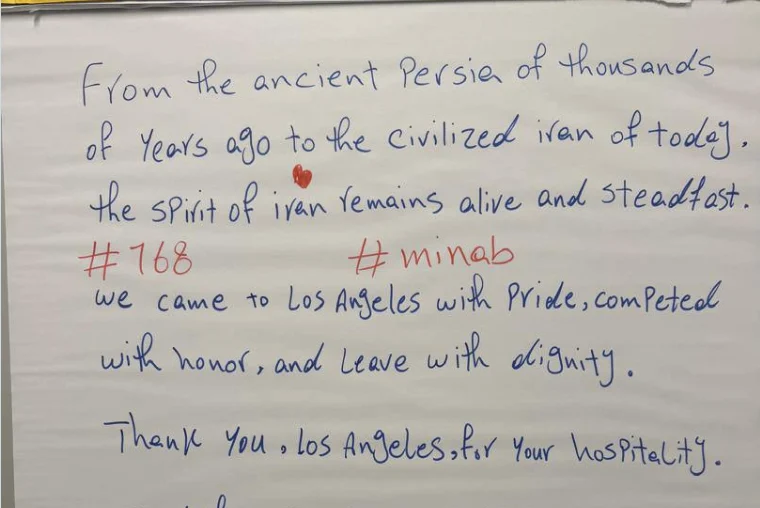 From the ancient Persia of thousands
of years ago to the civilized iran of today.
the spirit of iran remains alive and steadfast.
#168 #minab
we came to Los Angeles with Pride, competed
with honor, and Leave with dignity.
Thank you, Los Angeles, for your hospitality.